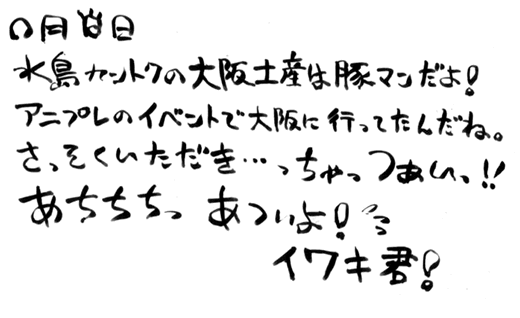 〇月〇日
水島カントクの大阪土産は豚マンだよ!
アニプレのイベントで大阪に行ってたんだね。
さっそくいただき…っちゃっつあいっ!!
あちちちっ あついよ!
イワキ君!